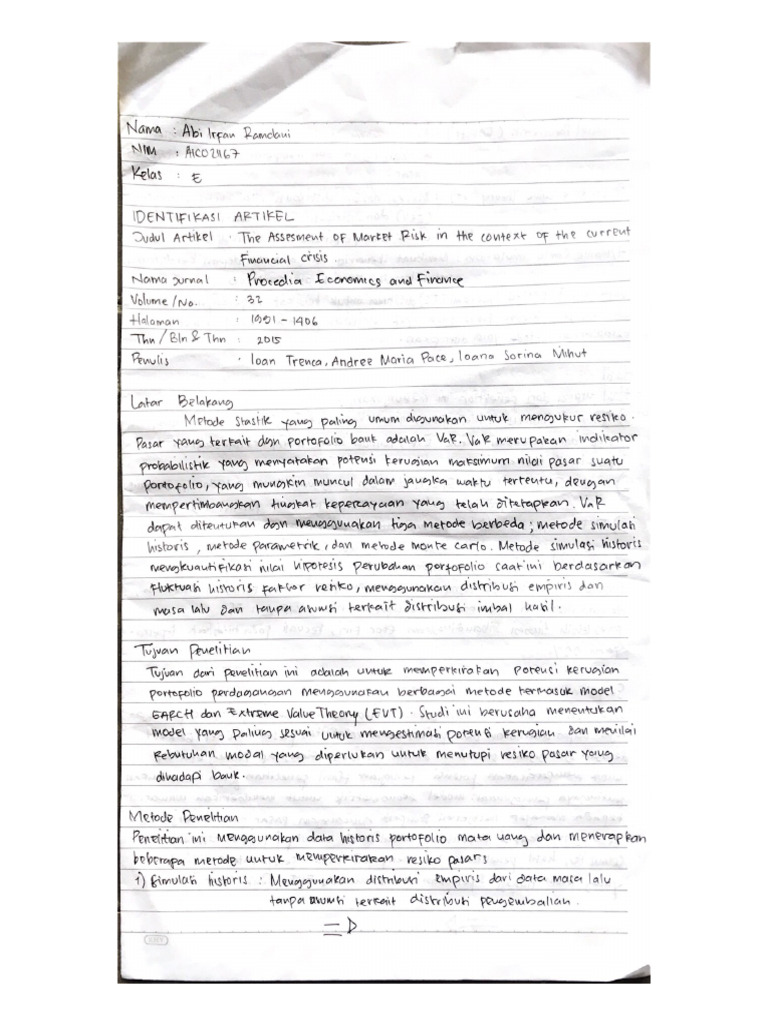 Nama : Abi Irfan Ramdani
NIM : A1C021167
Kelas : E
IDENTIFIKASI ARTIKEL
Judul Artikel : The Assesment of Market Risk in the context of the current
Financial crisis.
Nama Jurnal : Procedia Economics and Finance
Volume/No. : 32
Halaman : 1391 - 1406
Thn/Bln & Thn : 2015
Penulis : Ioan Trenca, Andree Maria Pace, Ioana Sorina Mihut
Latar Belakang
Metode Stastik yang paling umum digunakan untuk mengukur resiko
Pasar yang terkait dgn portofolio bank adalah VaR. VaR merupakan indikator
probabilistik yang menyatakan potensi kerugian maksimum nilai pasar suatu
portofolio, yang mungkin muncul dalam jangka waktu tertentu, dengan
mempertimbangkan tingkat kepercayaan yang telah ditetapkan. VaR
dapat ditentukan dgn menggunakan tiga metode berbeda; metode simulasi
historis, metode parametrik, dan metode monte carlo. Metode simulasi historis
mengkuantifikasi nilai hipotesis perubahan portofolio saat ini berdasarkan
fluktuasi historis faktor resiko, menggunakan distribusi empiris dan
masa lalu dan tanpa asumsi terkait distribusi imbal hasil.
Tujuan Penelitian
Tujuan dari penelitian ini adalah untuk memperkirakan potensi kerugian
portofolio perdagangan menggunakan berbagai metode termasuk model
GARCH dan Extreme Value Theory (EVT). Studi ini berusaha menentukan
model yang paling sesuai untuk mengestimasi potensi kerugian dan menilai
kebutuhan modal yang diperlukan untuk menutupi resiko pasar yang
dihadapi bank.
Metode Penelitian
Penelitian ini menggunakan data historis portofolio mata uang dan menerapkan
beberapa metode untuk memperkirakan resiko pasars
1) Simulasi historis : Menggunakan distribusi empiris dari data masa lalu
tanpa asumsi terkait distribusi pengembalian.